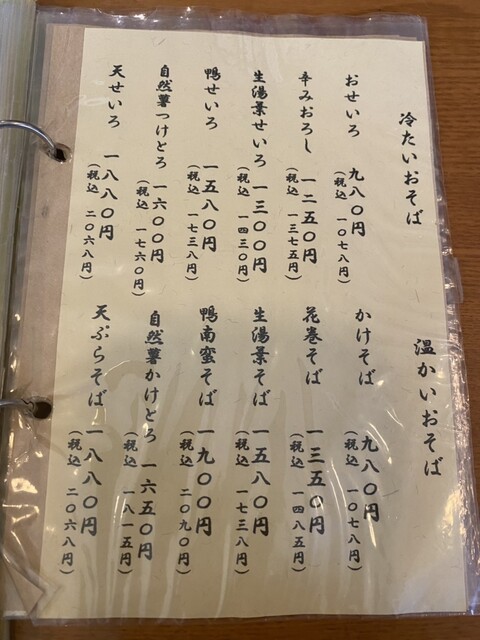 冷たいおそば
おせいろ 九八〇円
(税込 一〇七八円)
辛みおろし 一二五〇円
(税込 一三七五円)
生湯葉せいろ 一三〇〇円
(税込 一四三〇円)
鴨せいろ 一五八〇円
(税込 一七三八円)
自然薯つけとろ 一六〇〇円
(税込 一七六〇円)
天せいろ 一八八〇円
(税込 二〇六八円)
温かいおそば
かけそば 九八〇円
(税込 一〇七八円)
花巻そば 一三五〇円
(税込 一四八五円)
生湯葉そば 一五八〇円
(税込 一七三八円)
鴨南蛮そば 一九〇〇円
(税込 二〇九〇円)
自然薯かけとろ 一六五〇円
(税込 一八一五円)
天ぷらそば 一八八〇円
(税込 二〇六八円)